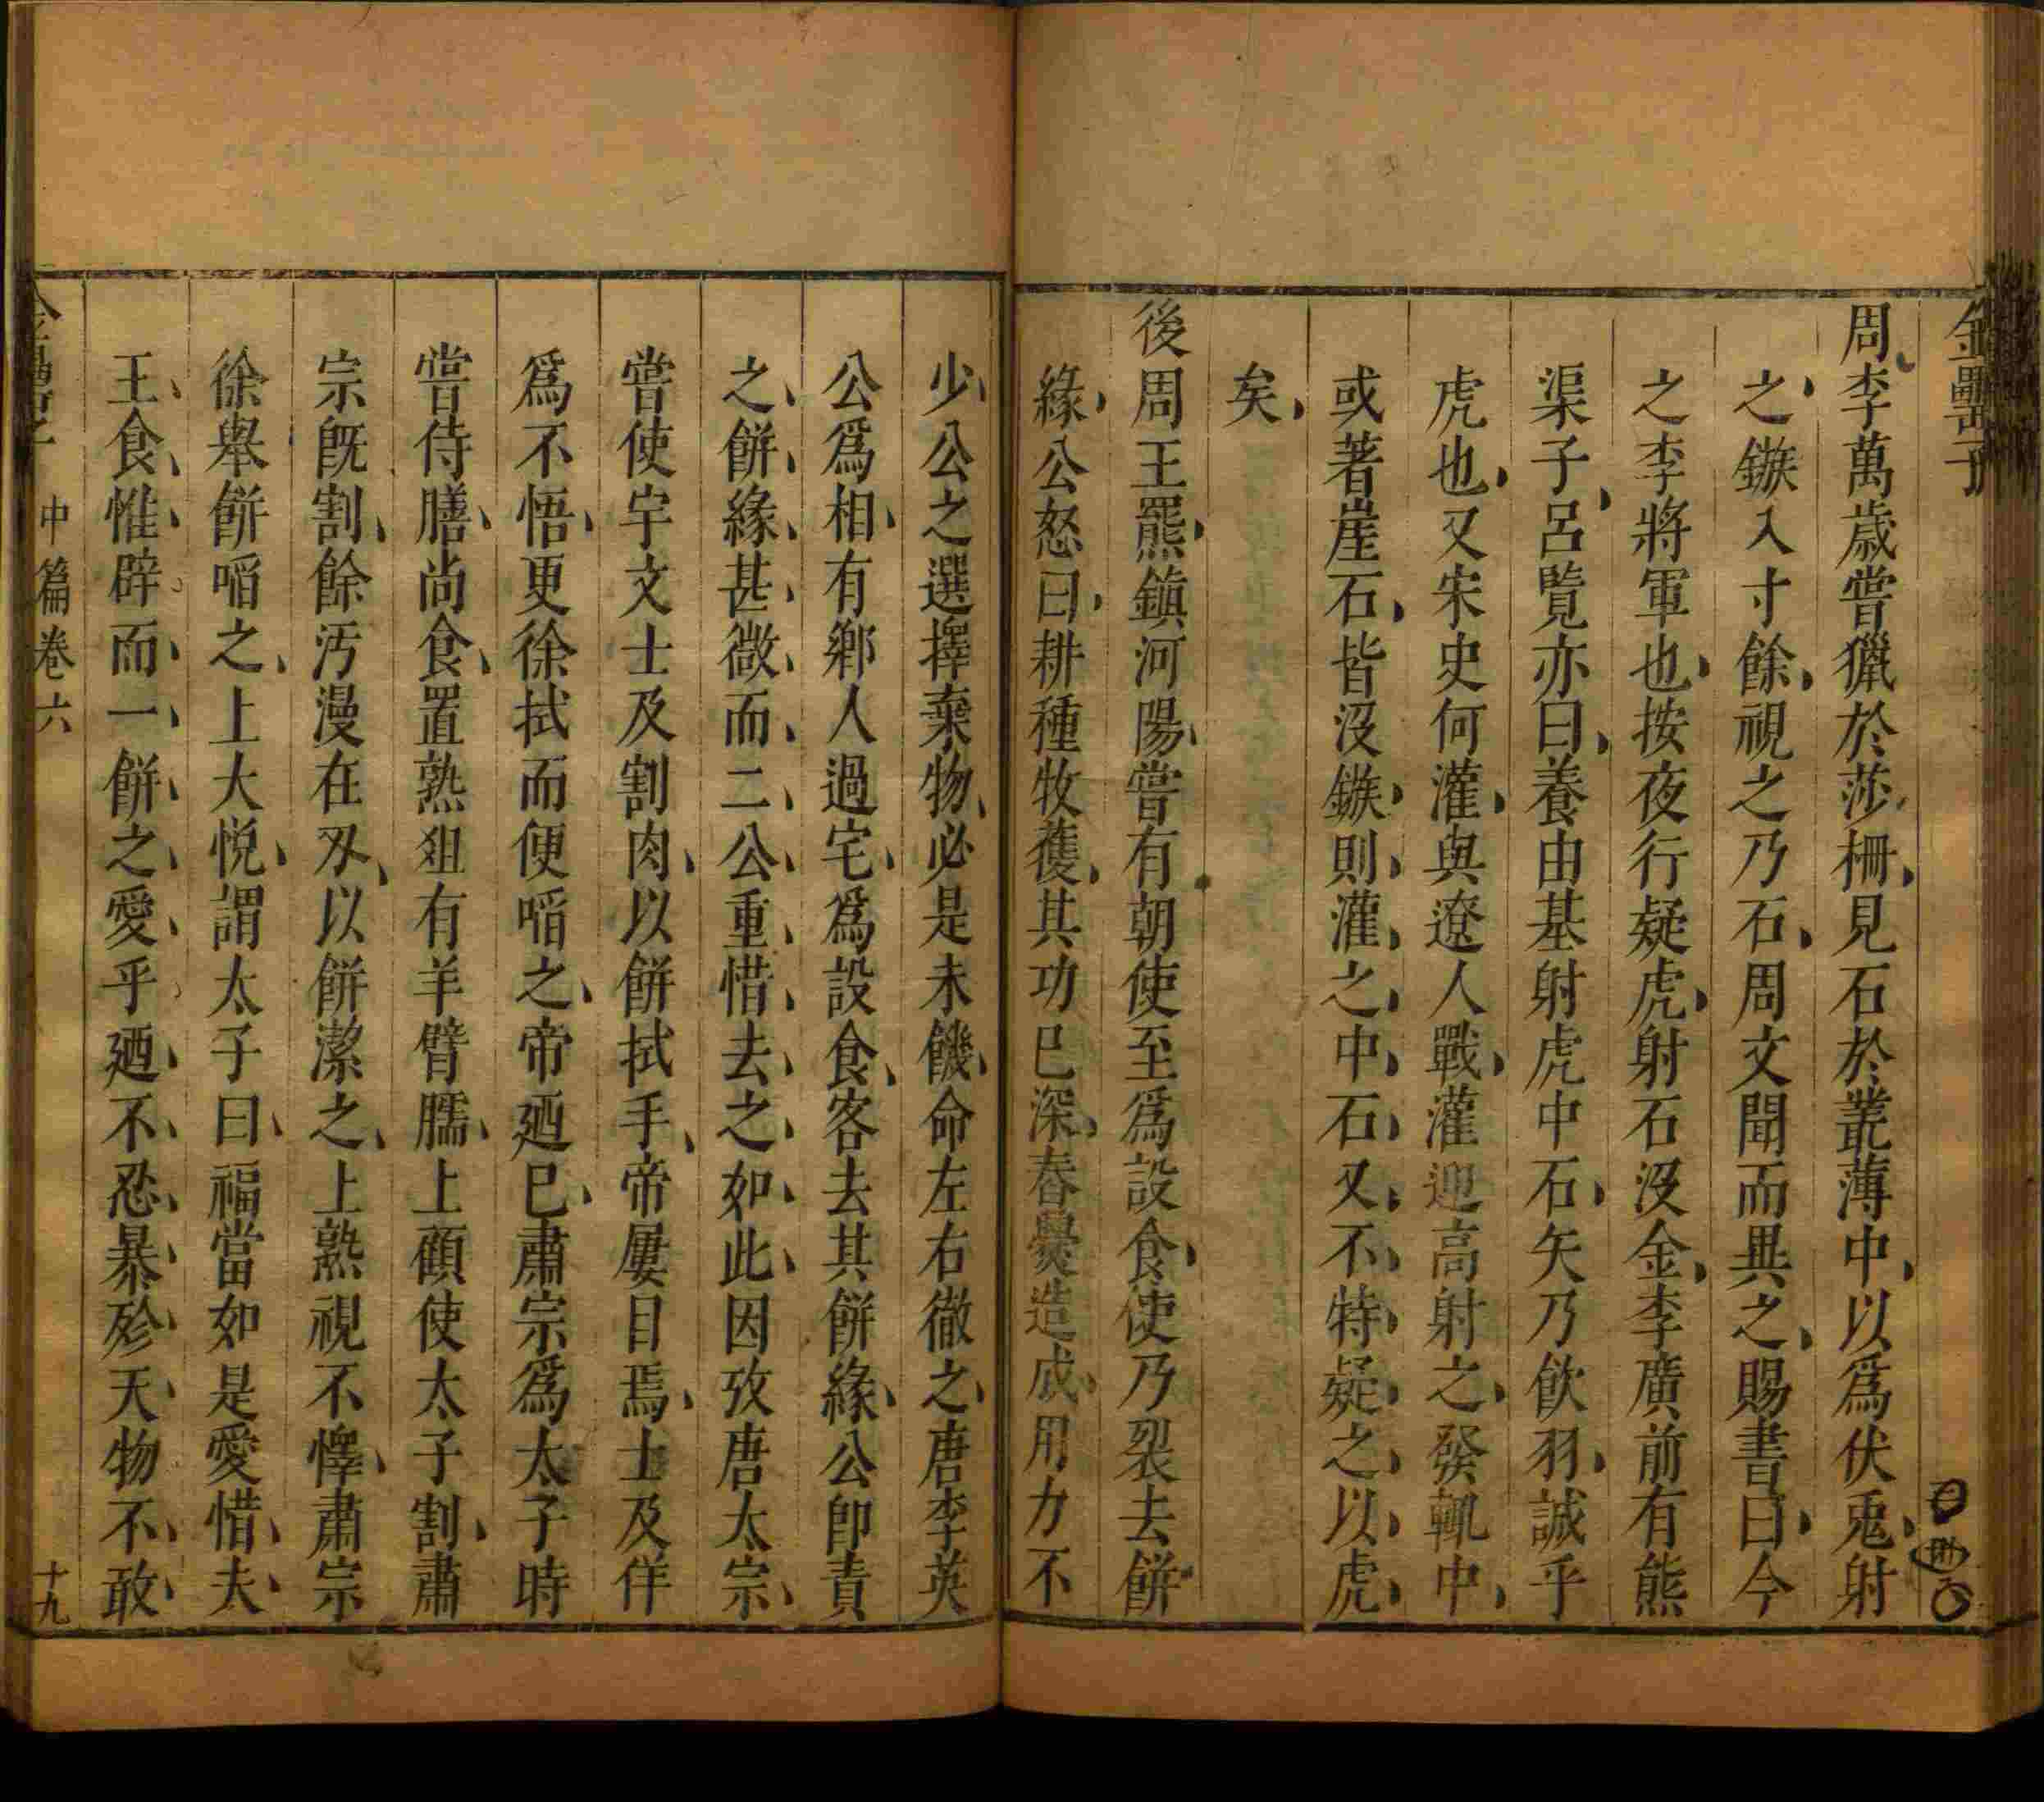 金罍子
周李萬歲嘗獵於莎柵見石於叢薄中以爲伏兎射
之鏃入寸餘視之乃石周文聞而異之賜書曰今
之李將軍也按夜行疑虎射石沒金李廣前有熊
渠子呂覽亦曰養由基射虎中石矢乃飮羽誠乎
虎也又宋史何灌與遼人戰灌迎高射之發輒中
或著崖石皆沒鏃則灌之中石又不特疑之以虎
矣
後周王羆鎮河陽嘗有朝使至爲設食使乃裂去餅
緣公怒曰耕種牧穫其功巳深舂爨造成用力不
少公之選擇棄物必是未饑命左右徹之唐李英
公爲相有鄉人過宅爲設食客去其餅緣公卽責
之餅緣甚微而二公重惜去之如此因攷唐太宗
嘗使宇文士及割肉以餅拭手帝屢目焉士及佯
爲不悟更徐拭而便啗之帝廼巳肅宗爲太子時
嘗侍膳尚食置熟俎有羊臂臑上顧使太子割肅
宗旣割餘汚漫在刄以餅潔之上熟視不懌肅宗
徐舉餅啗之上大悅謂太子曰福當如是愛惜夫
王食惟辟而一餅之愛乎廼不忍暴殄天物不敢
中篇卷六
十九